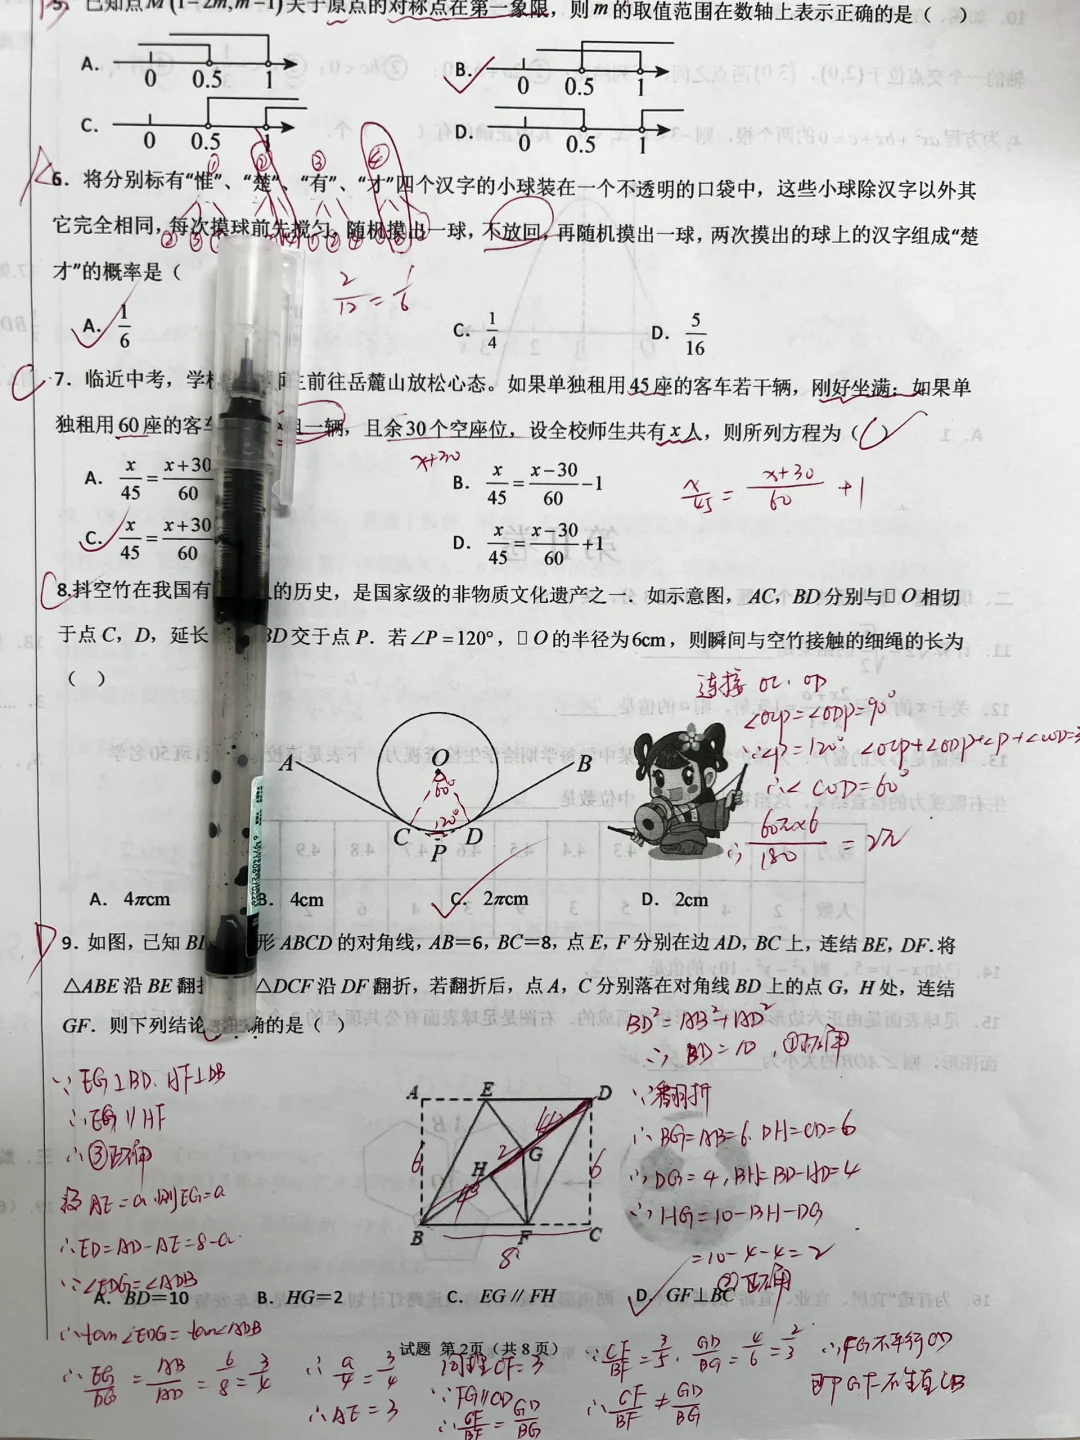 5．已知点M(1－2m,m－1)关于原点的对称点在第一象限，则m的取值范围在数轴上表示正确的是（　）
A. 0 0.5 1
B. 0 0.5 1
C. 0 0.5 1
D. 0 0.5 1
① ② ③ ④
6．将分别标有“惟”、“楚”、“有”、“才”四个汉字的小球装在一个不透明的口袋中，这些小球除汉字以外其
它完全相同，每次摸球前先搅匀，随机摸出一球，不放回，再随机摸出一球，两次摸出的球上的汉字组成“楚
才”的概率是（
2/12 = 1/6
A. 1/6
C. 1/4
D. 5/16
C 7．临近中考，学 前往岳麓山放松心态。如果单独租用45座的客车若干辆，刚好坐满；如果单
独租用60座的客 一辆，且余30个空座位，设全校师生共有x人，则所列方程为（　）
x+30
A. x/45 = x+30/60
B. x/45 = x－30/60 －1
x/45 = x+30/60 +1
C. x/45 = x+30/60
D. x/45 = x－30/60 +1
C 8.抖空竹在我国有 的历史，是国家级的非物质文化遗产之一．如示意图，AC，BD分别与□ O相切
于点C，D，延长 BD交于点P．若∠P=120°，□ O的半径为6cm，则瞬间与空竹接触的细绳的长为
（　）
连接 OC、OD
∠OCP=∠ODP=90°
∵∠P=120° ∠OCP+∠ODP+∠P+∠COD=
∴∠COD=60°
∴ 60π×6/180 = 2π
A O B
60°
120°
C D
P
A. 4πcm
B. 4cm
C. 2πcm
D. 2cm
D 9．如图，已知 形ABCD的对角线，AB＝6，BC＝8，点E，F分别在边AD，BC上，连结BE，DF.将
△ABE沿BE翻 △DCF沿DF翻折，若翻折后，点A，C分别落在对角线BD上的点G，H处，连结
GF．则下列结论 确的是（　）
BD²=AB²+AD²
∴ BD=10，①正确
∵翻折
∴BG=AB=6. DH=CD=6
∴DG=4，BH=BD-HD=4
∴HG=10-BH-DG
=10-4-4=2
②正确
∵EG⊥BD、HF⊥DB
∴EG∥HF
∴③正确
设AE=a，则EG=a
∴ED=AD-AE=8-a
∵∠EDG=∠ADB
A E D
4
6 2 G 6
H
4
B F C
8
A. BD＝10
B. HG＝2
C. EG∥FH
D. GF⊥BC
∴tan∠EDG=tan∠ADB
∴ EG/DG = AB/AD = 6/8 = 3/4
∴ a/4 = 3/4
∴AE=3
试题 第2页（共8页）
同理CF=3
∵FG∥CD
∴ CF/BF = GD/BG
∵ CF/BF = 3/5，GD/BG = 4/6 = 2/3
∴ CF/BF ≠ GD/BG
∴FG不平行CD
即GF不垂直CB